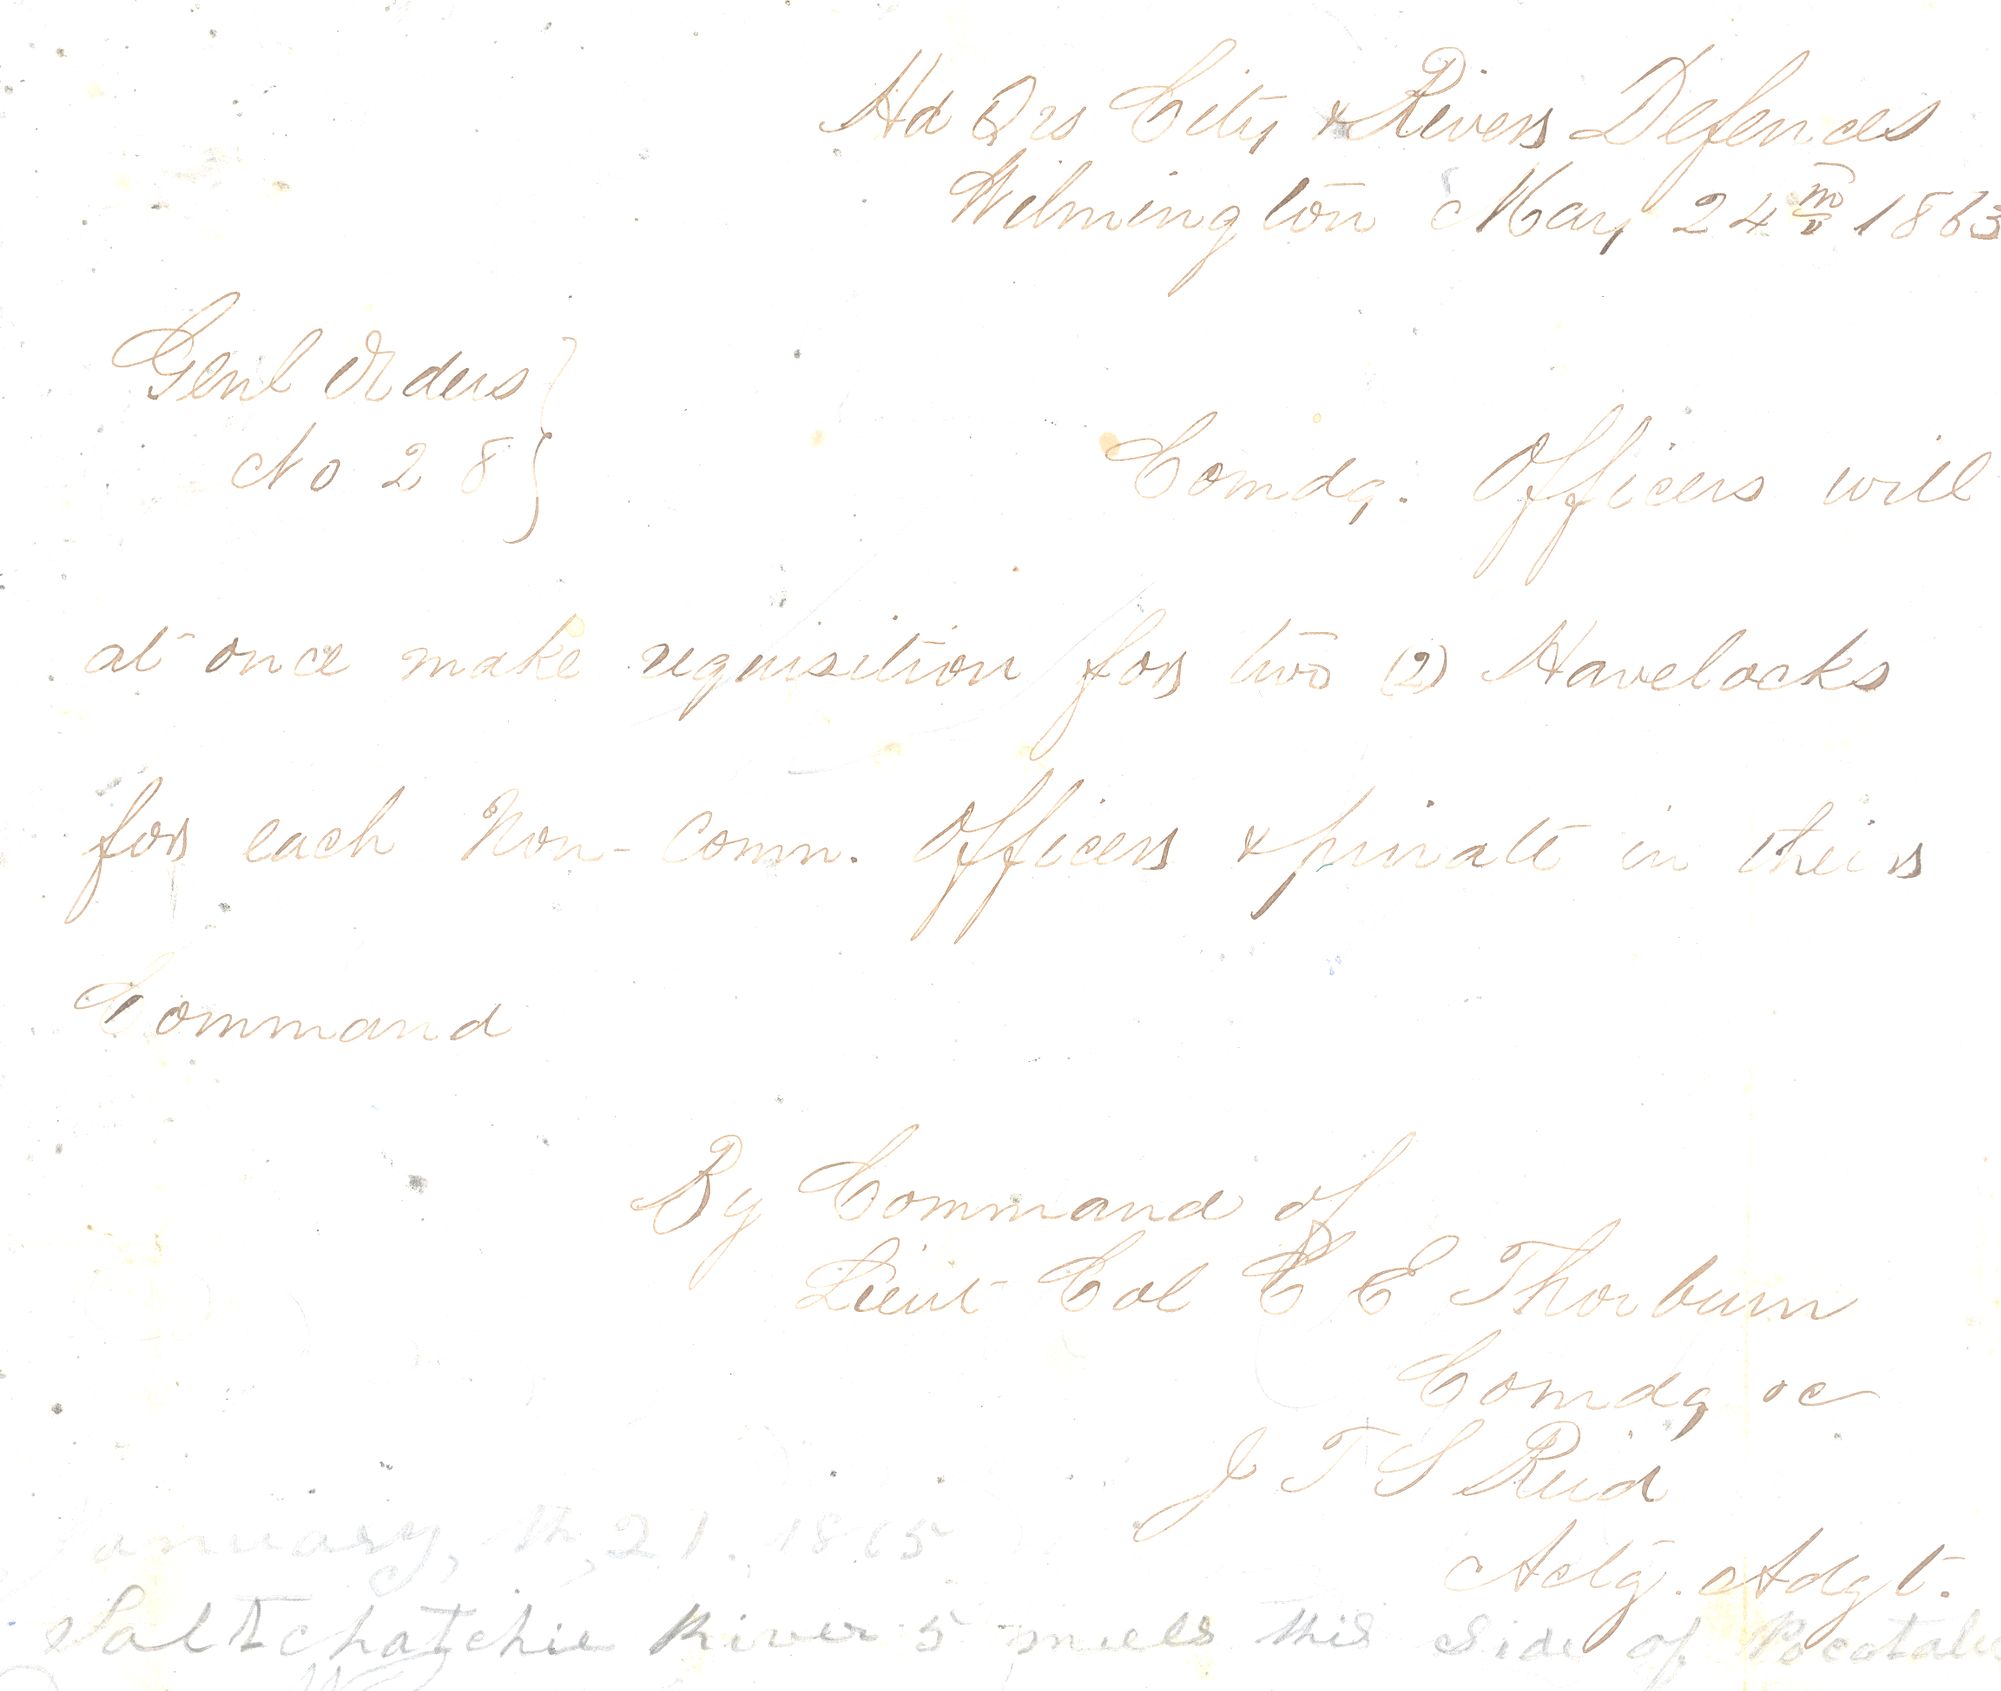 Hd Qrs City & River Defences
Wilmington May 24th 1863
Genl Orders
No 28
Comdg. Officers will
at once make requisition for two (2) Havelocks
for each Non-Comn. Officer & private in their
Command
By Command of
Lieut Col C E Thorburn
Comdg &c
J T S Reid
Actg. Adgt.
January, th, 21, 1865
Saltkchatchie River 5 miels this side of Pocotalie